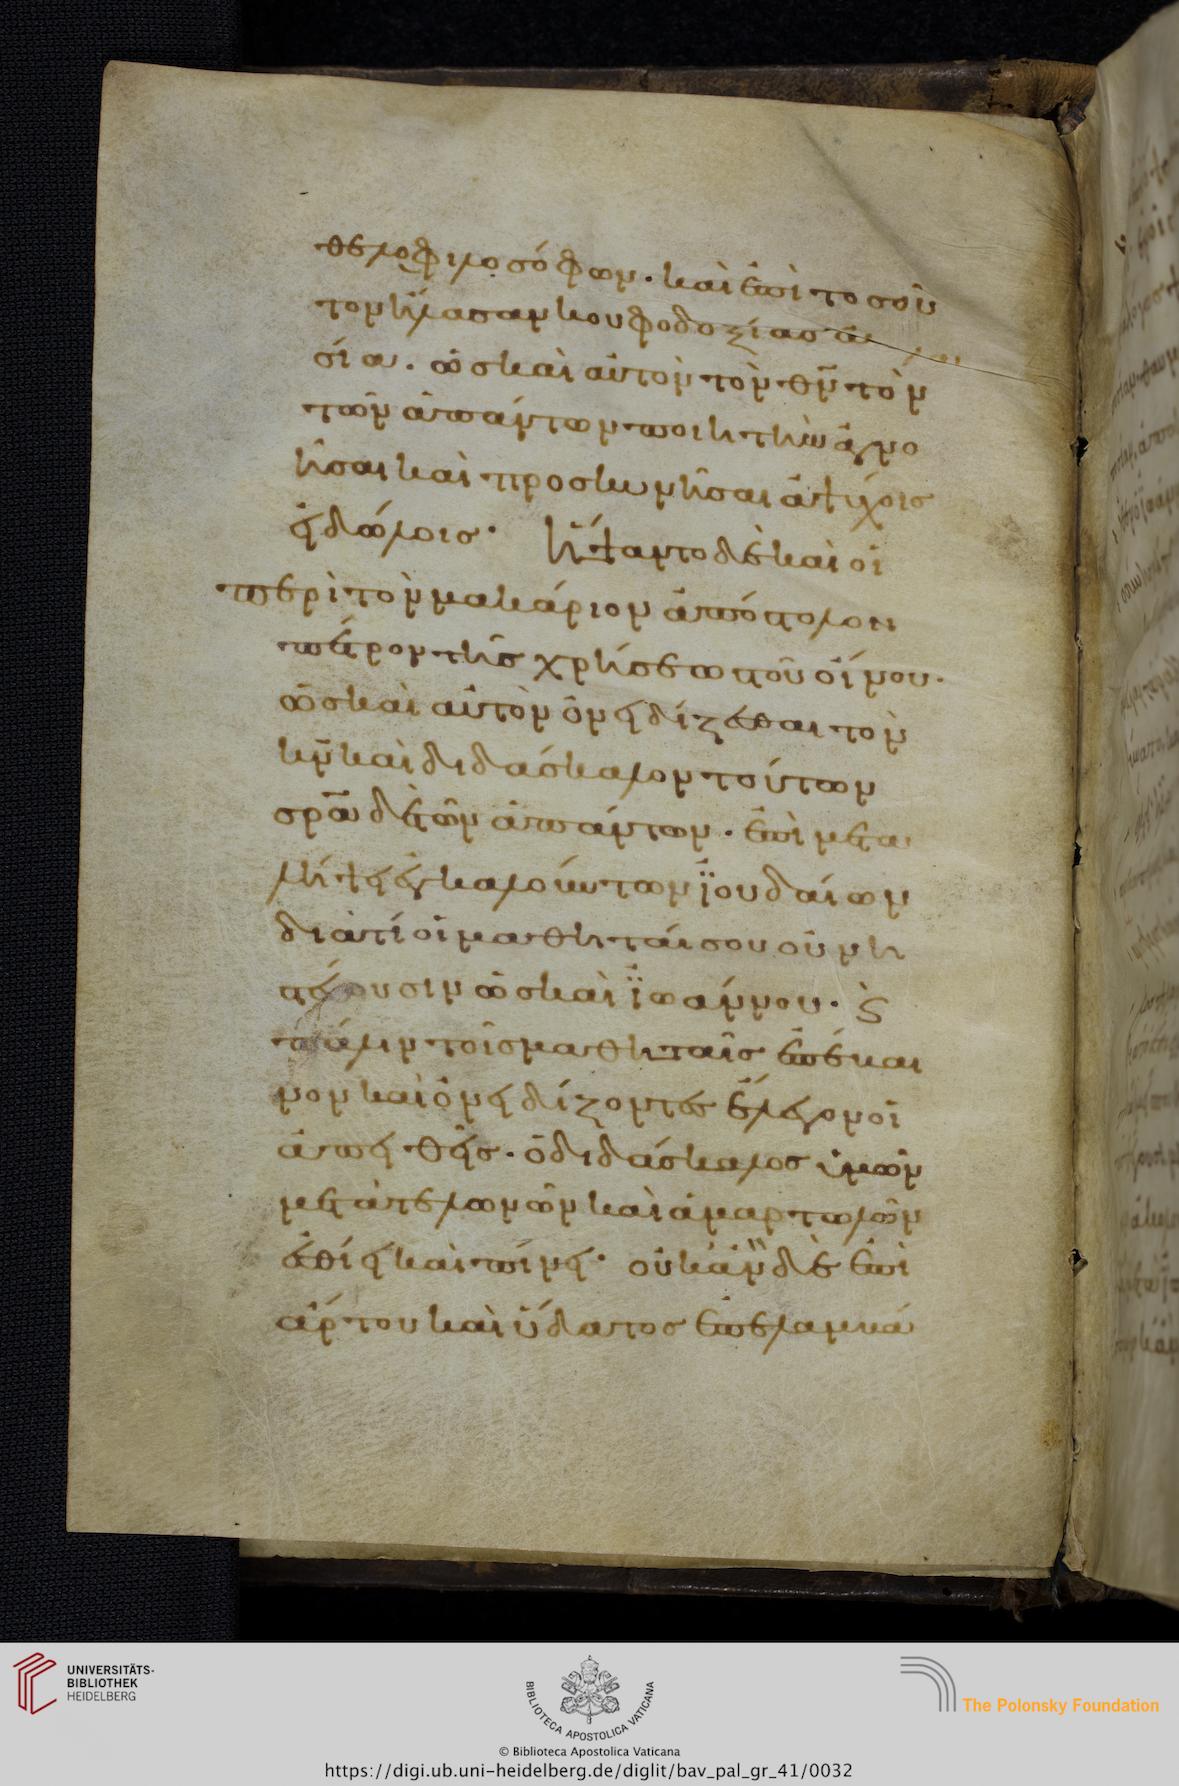 θελοφιλοσόφων· καὶ ἐπὶ τοσοῦ
τον ἤλασαν κουφοδοξίας
σία. ὡς καὶ αὐτὸν τὸν θ̅ν̅ τὸν
τῶν ἁπάντων ποιητὴν ἀγνο
ῆσαι καὶ προσκυνῆσαι ἀψύχοις
εἰδώλοις· ἥψαντο δὲ καὶ οἱ
περὶ τὸν μακάριον ἀπόστολον
πέτρον τῆς χρήσεως τοῦ οἴνου·
ὡς καὶ αὐτὸν ὀνειδίζεσθαι τὸν
κ̅ν̅ καὶ διδάσκαλον τούτων
σ̅ρ̅α̅ δὲ τῶν ἁπάντων· ἐπὶ μετα
λήψει ἐγκαλούντων ἰουδαίων
διατί οἱ μαθηταί σου οὐ νη
στεύουσιν ὡς καὶ ἰωάννου· ϛ
πάλιν τοῖς μαθηταῖς ἐπέκαι
νον καὶ ὀνειδίζοντες ἔλεγον οἱ
ἀπειθεῖς· ὁ διδάσκαλος ὑμῶν
μετὰ τελωνῶν καὶ ἁμαρτωλῶν
ἐσθίει καὶ πίνει· οὐκ ἂν δὲ ἐπὶ
ἄρτου καὶ ὕδατος ἐπελαμκά
UNIVERSITÄTS-
BIBLIOTHEK
HEIDELBERG
BIBLIOTECA APOSTOLICA VATICANA
The Polonsky Foundation
© Biblioteca Apostolica Vaticana
https://digi.ub.uni-heidelberg.de/diglit/bav_pal_gr_41/0032